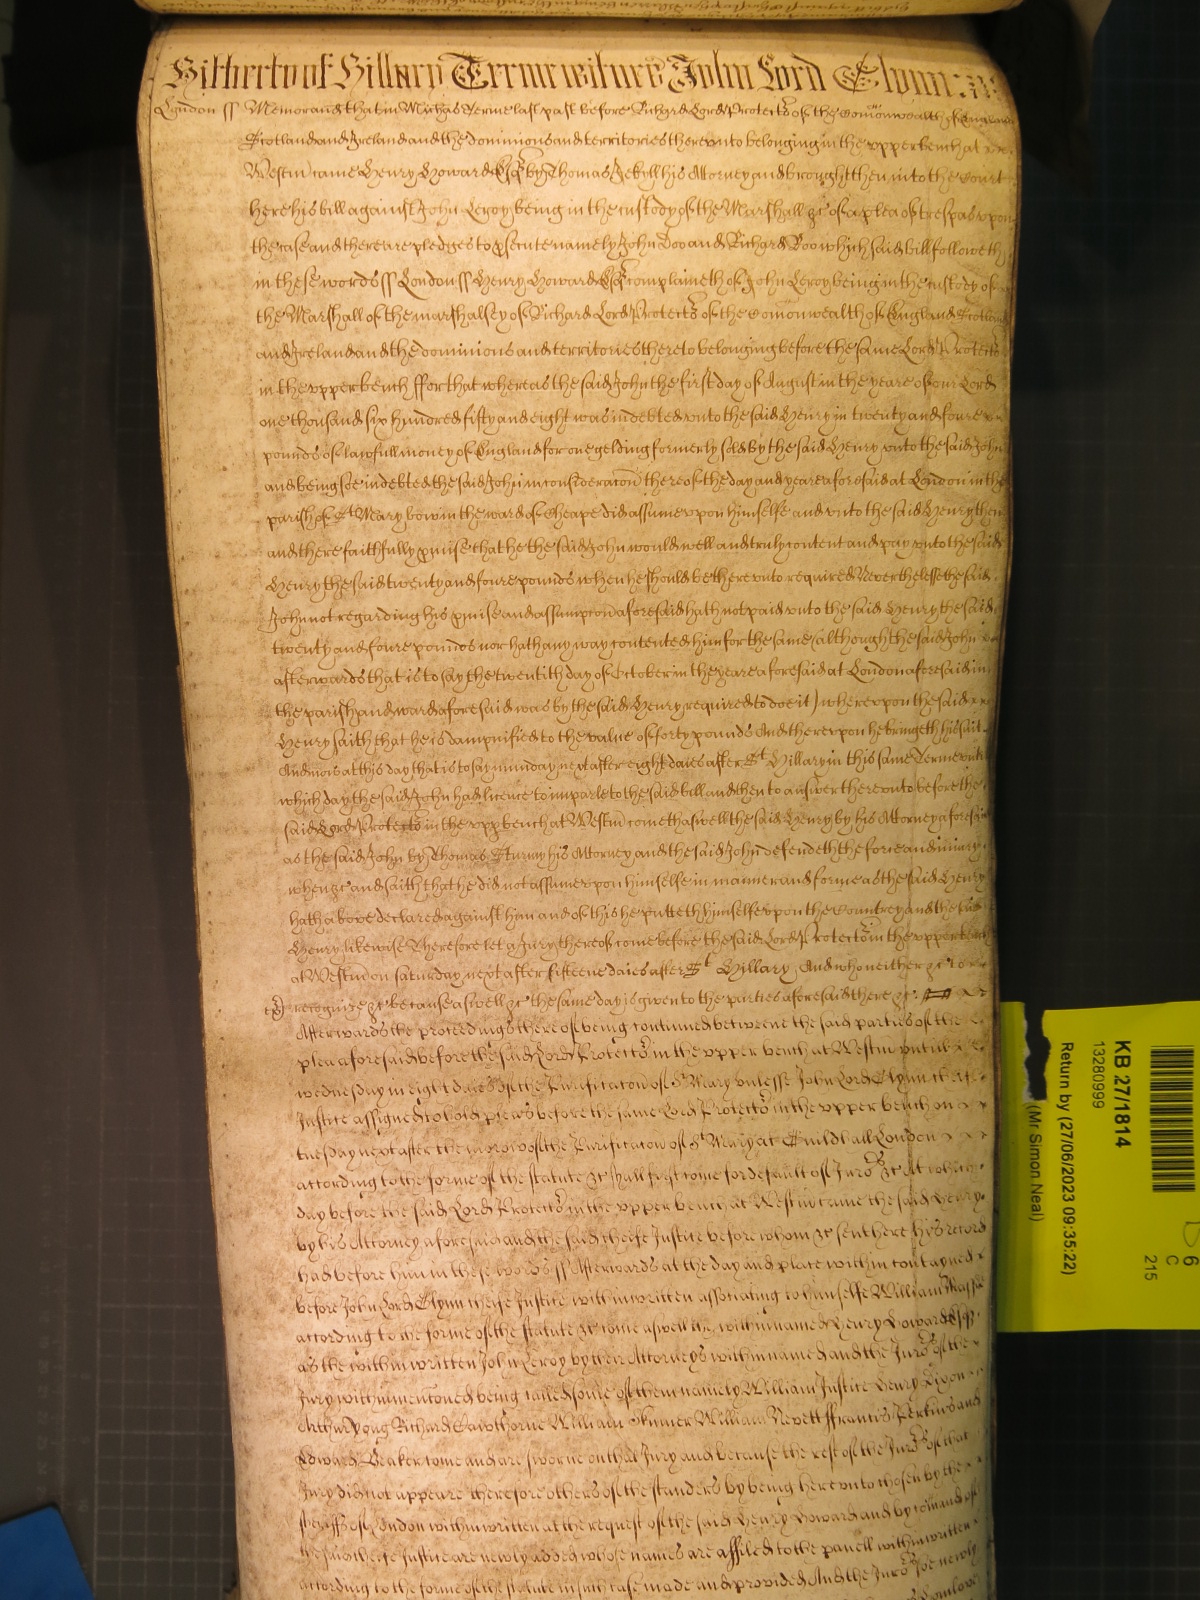 Hitherto of Hillary Terme witnes John Lord Glynn
London ss Memorand that in Michas Terme last past before Richard Lord Protector of the Comonwealth of England
Scotland and Ireland and the dominions and territories therevnto belonging in the vpper bench at
Westm came Henry Howard Esqr by Thomas Jekyll his Attorney and brought then into the Court
here his bill against John Leroy being in the custody of the Marshall &c of a plea of trespas vpon
the case and there are pledges to psecute namely John Doo and Richard Roo which said bill followeth
in these words ss London ss Henry Howard Esqr complaineth of John Leroy being in the custody of
the Marshall of the marshalsey of Richard Lord Protector of the Comonwealth of England Scotland
and Ireland and the dominions and territories thereto belonging before the same Lord Protector
in the vpper bench ffor that whereas the said John the first day of August in the yeare of our Lord
one thousand six hundred fifty and eight was indebted vnto the said Henry in twenty and foure
pounds of lawfull money of England for one gelding formerly sold by the said Henry vnto the said John
and being soe indebted the said John in consideracon thereof the day and yeare aforesaid at London in the
parish of St Mary bow in the ward of Cheape did assume vpon himselfe and vnto the said Henry then
and there faithfully pmise that he the said John would well and truly content and pay vnto the said
Henry the said twenty and foure pounds when he should be therevnto required Neverthelesse the said
John not regarding his pmise and assumpcon aforesaid hath not paid vnto the said Henry the said
twenty and foure pounds nor hath any way contented him for the same (although the said John
afterwards that is to say the twentith day of October in the yeare aforesaid at London aforesaid in
the parish and ward aforesaid was by the said Henry required to doe it) wherevpon the said
Henry saith that he is dampnified to the value of forty pounds And therevpon he bringeth his suit
And now at this day that is to say munday next after eight daies after St Hillary in this same Terme vntill
which day the said John had licence to imparle to the said bill and then to answer therevnto before the
said Lord Protector in the vpp bench at Westm cometh aswell the said Henry by his Attorney aforesaid
as the said John by Thomas Sturmy his Attorney and the said John defendeth the force and iniury
when &c and saith that he did not assume vpon himselfe in manner and forme as the said Henry
hath above declared against him and of this he putteth himselfe vpon the Countrey and the said
Henry likewise Therefore let a Jury thereof come before the said Lord Protector in the vpper bench
at Westm on saturday next after fifteene daies after St Hillary And who neither &c to
recognize &c because aswell &c the same day is given to the parties aforesaid there &c
Afterwards the proceedings thereof being continued betweene the said parties of the
plea aforesaid before the said Lord Protector in the vpper bench at Westm vntill
wednesday in eight daies of the Purificacon of St Mary vnlesse John Lord Glynn cheife
Justice assigned to hold plews before the same Lord Protector in the vpper bench on
tuesday next after the morow of the Purificacon of St Mary at Guildhall London
according to the forme of the statute &c shall first come for default of Juro &c At which
day before the said Lord Protector in the vpper bench at Westm came the said Henry
by his Attorney aforesaid and the said cheife Justice before whom &c sent here his record
had before him in these words ss Afterwards at the day and place within contayned
before John Lord Glynn cheife Justice within written associating to himselfe William
according to the forme of the statute &c come aswell the within named Henry Howard Esqr
as the within written John Leroy by their Attorneys within named and the Juro of the
Jury within menconed being called some of them namely William Justice Henry Dixon
Arthur yong Richard Cawthorne William Skinner William Nevett ffrancis Perkins and
Edward Beaker come and are sworne on that Jury and because the rest of the Juro of that
Jury did not appeare therefore others of the standers by being herevnto chosen by the
sheriffs of London within written at the request of the said Henry Howard and by comand of
the said cheife Justice are newly added whose names are affiled to the panell within written
according to the forme of the statute in such case made and provided And the Juro soe newly
KB 27/1814
13280999
Return by (27/06/2023 09:35:22)
(Mr Simon Neal)
D 6
C
215